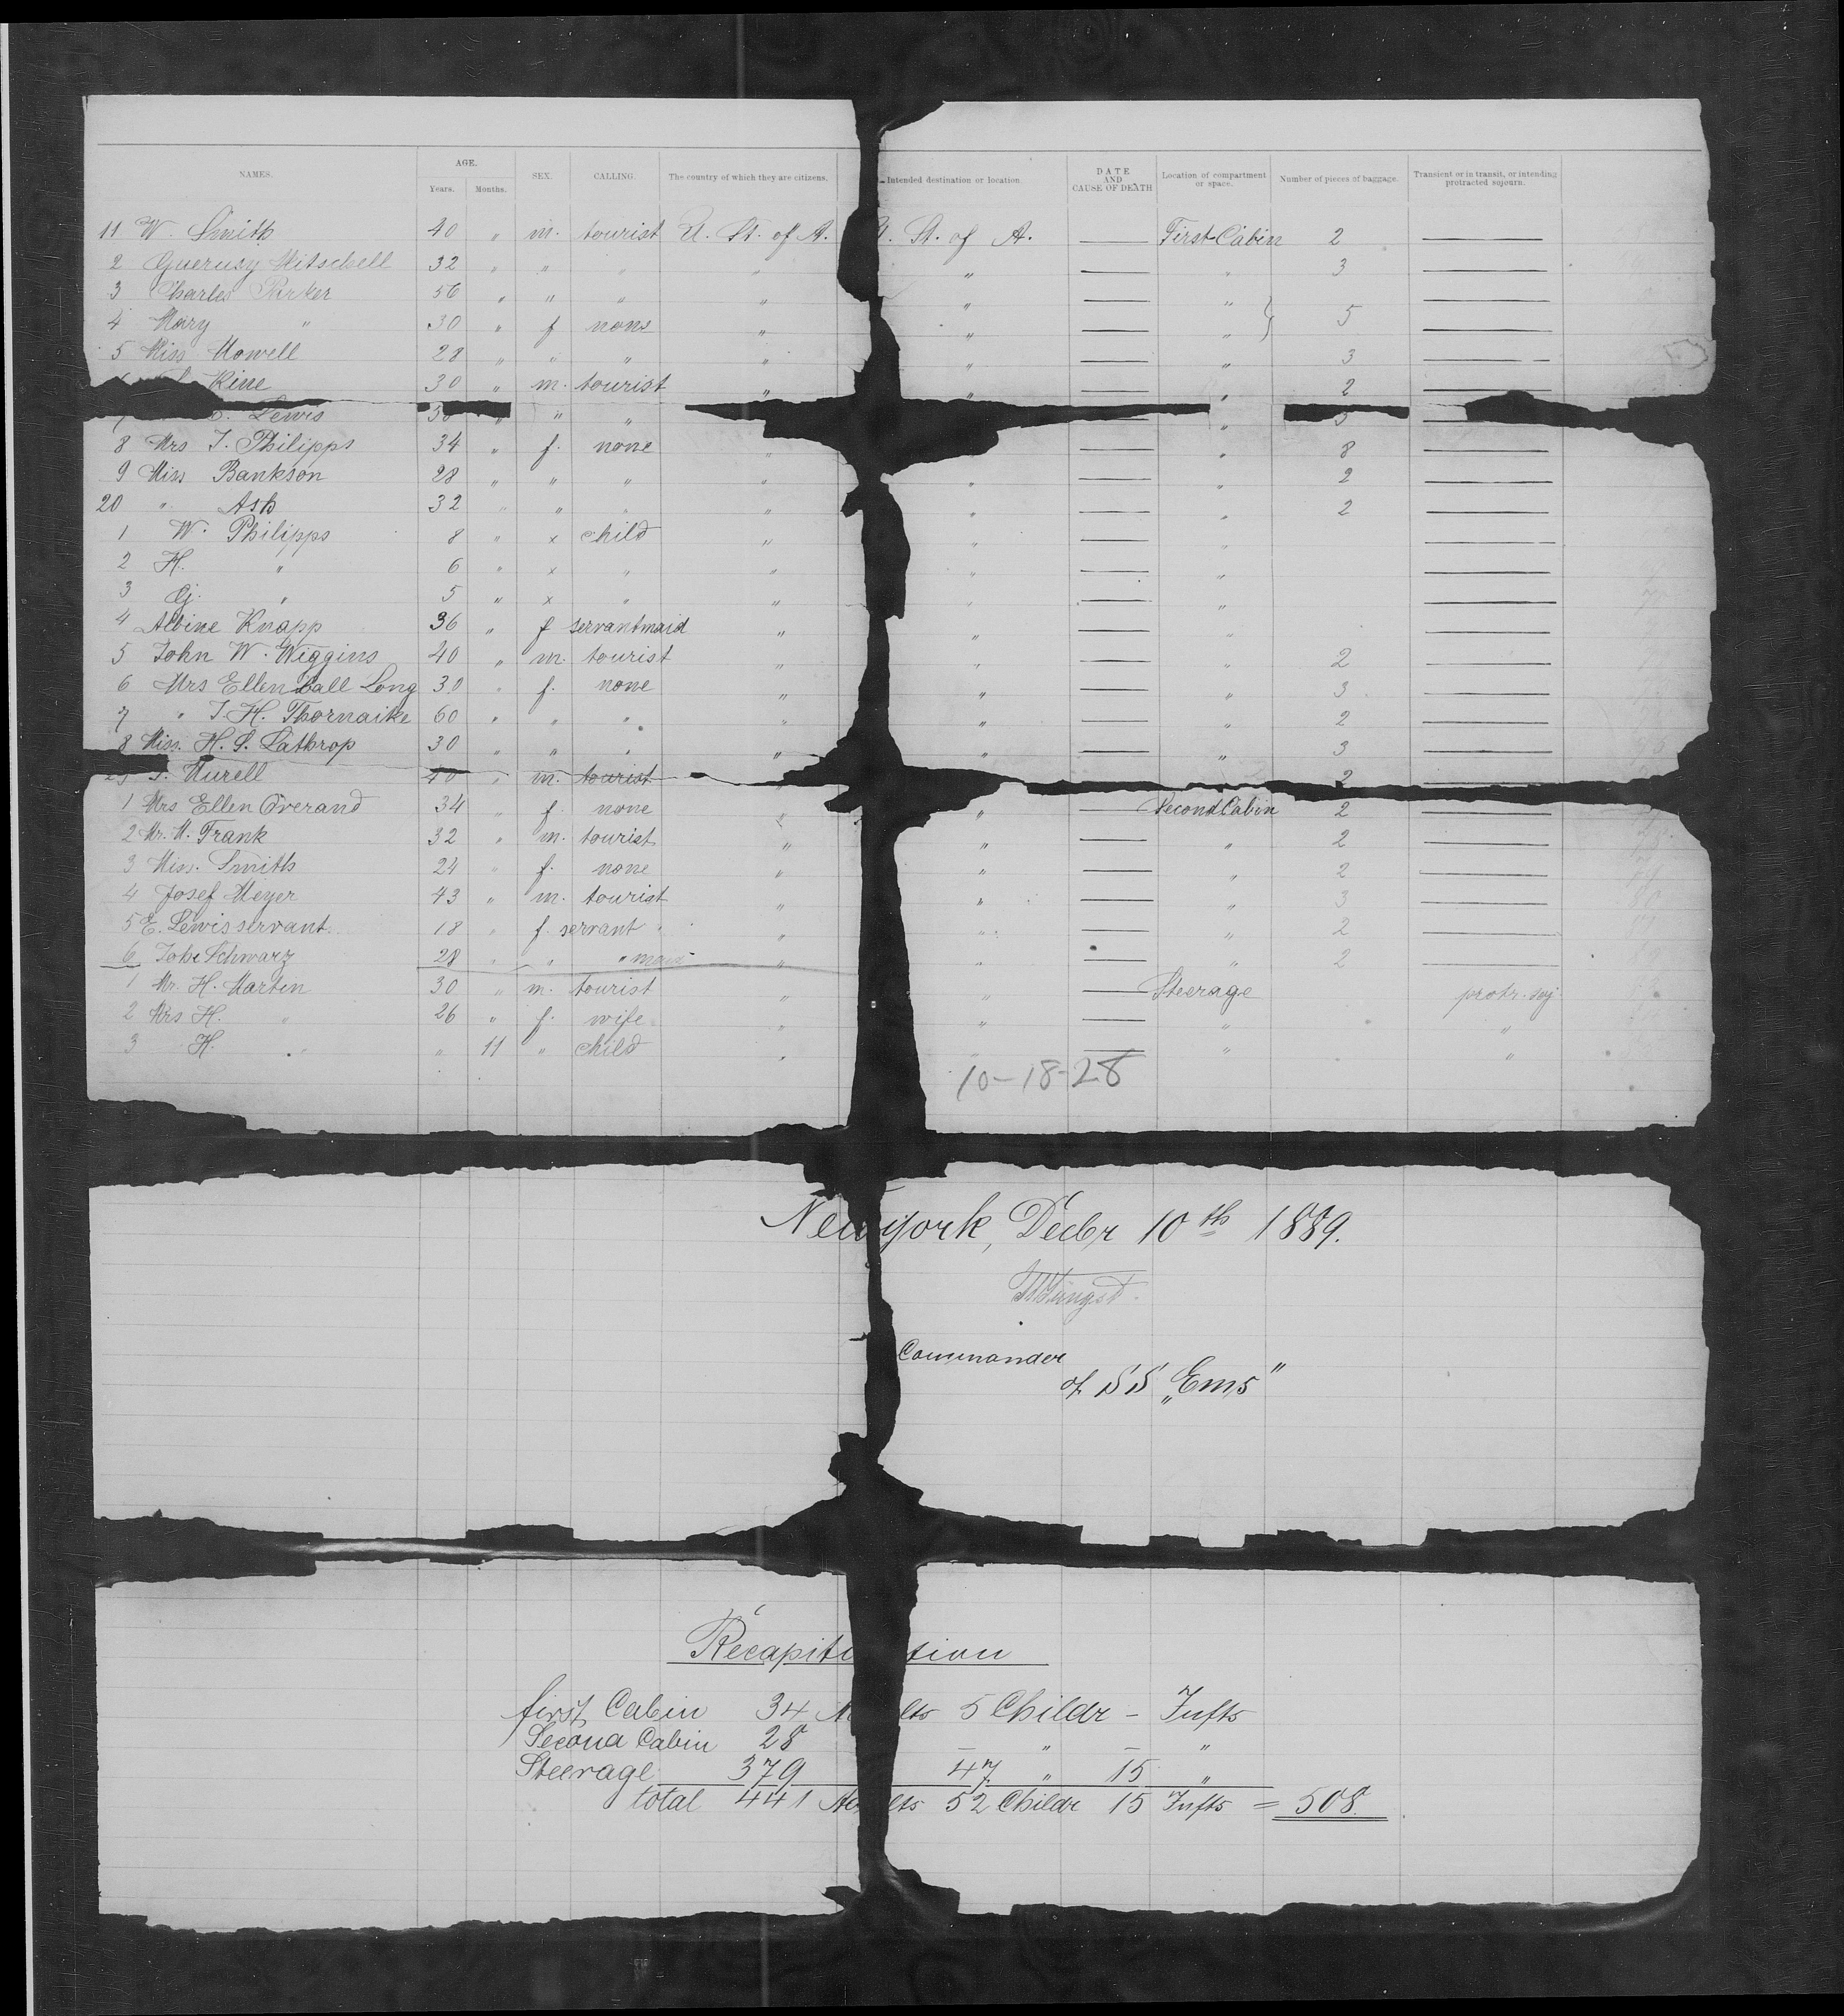 NAMES. AGE. Years. Months. SEX. CALLING. The country of which they are citizens. Intended destination or location. DATE AND CAUSE OF DEATH Location of compartment or space. Number of pieces of baggage. Transient or in transit, or intending protracted sojourn.
11 W. Smith 40 " m. tourist U. St. of A. U. St. of A. — First Cabin 2 —
2 Guernsy Mitschell 32 " " " " " — " 3 —
3 Charles Parker 56 " " " " " — " } 5 —
4 Mary " 30 " f none " " — " —
5 Miss Howell 28 " " " " " — " 3 —
Kine 30 " m. tourist " " — " 2 —
7 Lewis " " — " —
8 Mrs J. Philipps 34 " f. none " — " 8 —
9 Miss Bankson 28 " " " " " — " 2 —
20 " Ash 32 " " " " " — " 2 —
1 W. Philipps 8 " x child " " — " —
2 H. " 6 " x " " " — " —
3 G. " 5 " x " " " — " —
4 Albine Knapp 36 " f servantmaid " " — " —
5 John W. Wiggins 40 " m. tourist " " — " 2 —
6 Mrs Ellen Call Long 30 " f. none " " — " 3 —
7 " J. H. Thornaike 60 " " " " " — " 2 —
8 Miss. H. S. Lathrop 30 " " " " " — " 3 —
Murell 40 " m. tourist 2 —
1 Mrs Ellen Overand 34 " f. none " " — Second Cabin 2 —
2 Mr. M. Frank 32 " m. tourist " " — " 2 —
3 Miss. Smith 24 " f. none " " — " 2 —
4 Josef Meyer 43 " m. tourist " " — " 3 —
5 E. Lewis servant 18 " f. servant " " — " 2 —
6 Schwarz 28 " " " maid " " — " 2 —
1 Mr. H. Martin 30 " m. tourist " " — Steerage protr. soj.
2 Mrs H. " 26 " f. wife " " — " "
3 H. " " 11 " child " " — " "
10-18-28
New york, Decbr 10th 1889.
Commander
of SS „Ems"
Recapitu tion
first Cabin 34 A lts 5 Childr – Infts
Second Cabin 28 – " – "
Steerage 379 47 " 15 "
total 441 Ad lts 52 Childr 15 Infts = 508